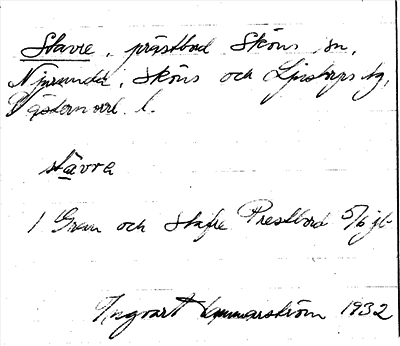 Stavre, prästbod Sköns sn,
Njurunda, Sköns och Ljustorps tg,
Västernorrl. l.
stavra
1 Gran och Stafre Prestbord 5/6 jb
Ingvart Hammarström 1932